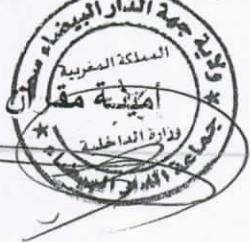 ولاية جهة الدار البيضاء سطات
المملكة المغربية
أمينة مقران
وزارة الداخلية
جماعة الدار البيضاء